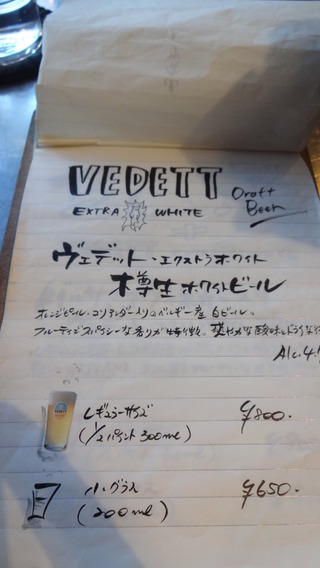 VEDETT Draft Beer
EXTRA WHITE
ヴェデット・エクストラホワイト
樽生ホワイトビール
オレンジピール、コリアンダー入りのベルギー産 白ビール。
フルーティでスパイシーな香りが特徴。爽やかな酸味と
Alc.4.
レギュラーサイズ ¥800.
(1/2パイント 300ml)
小グラス ¥650.
(200ml)